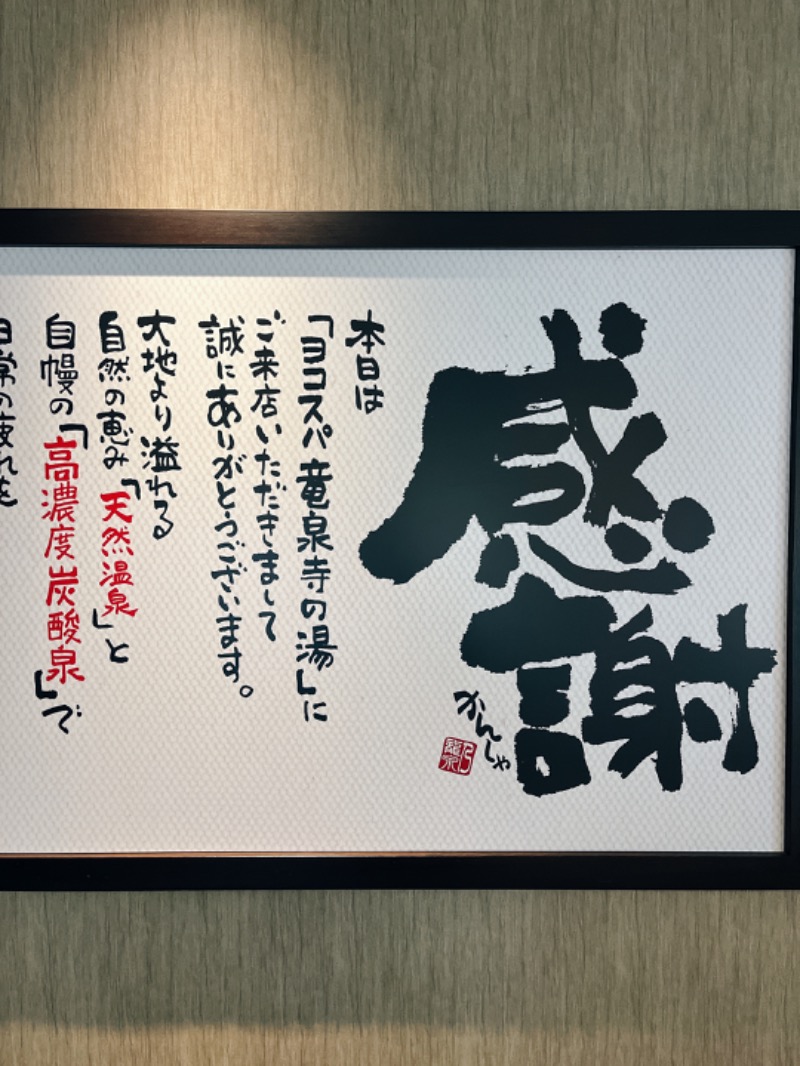 感謝
かんしゃ
本日は
「ヨコスパ竜泉寺の湯」に
ご来店いただきまして
誠にありがとうございます。
大地より溢れる
自然の恵み「天然温泉」と
自慢の「高濃度炭酸泉」で
日常の疲れを